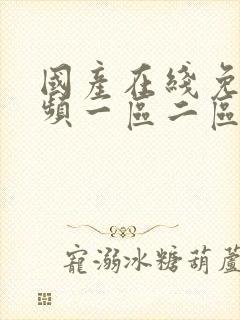 國產在綫免
頻一區二區
寵溺冰糖葫蘆